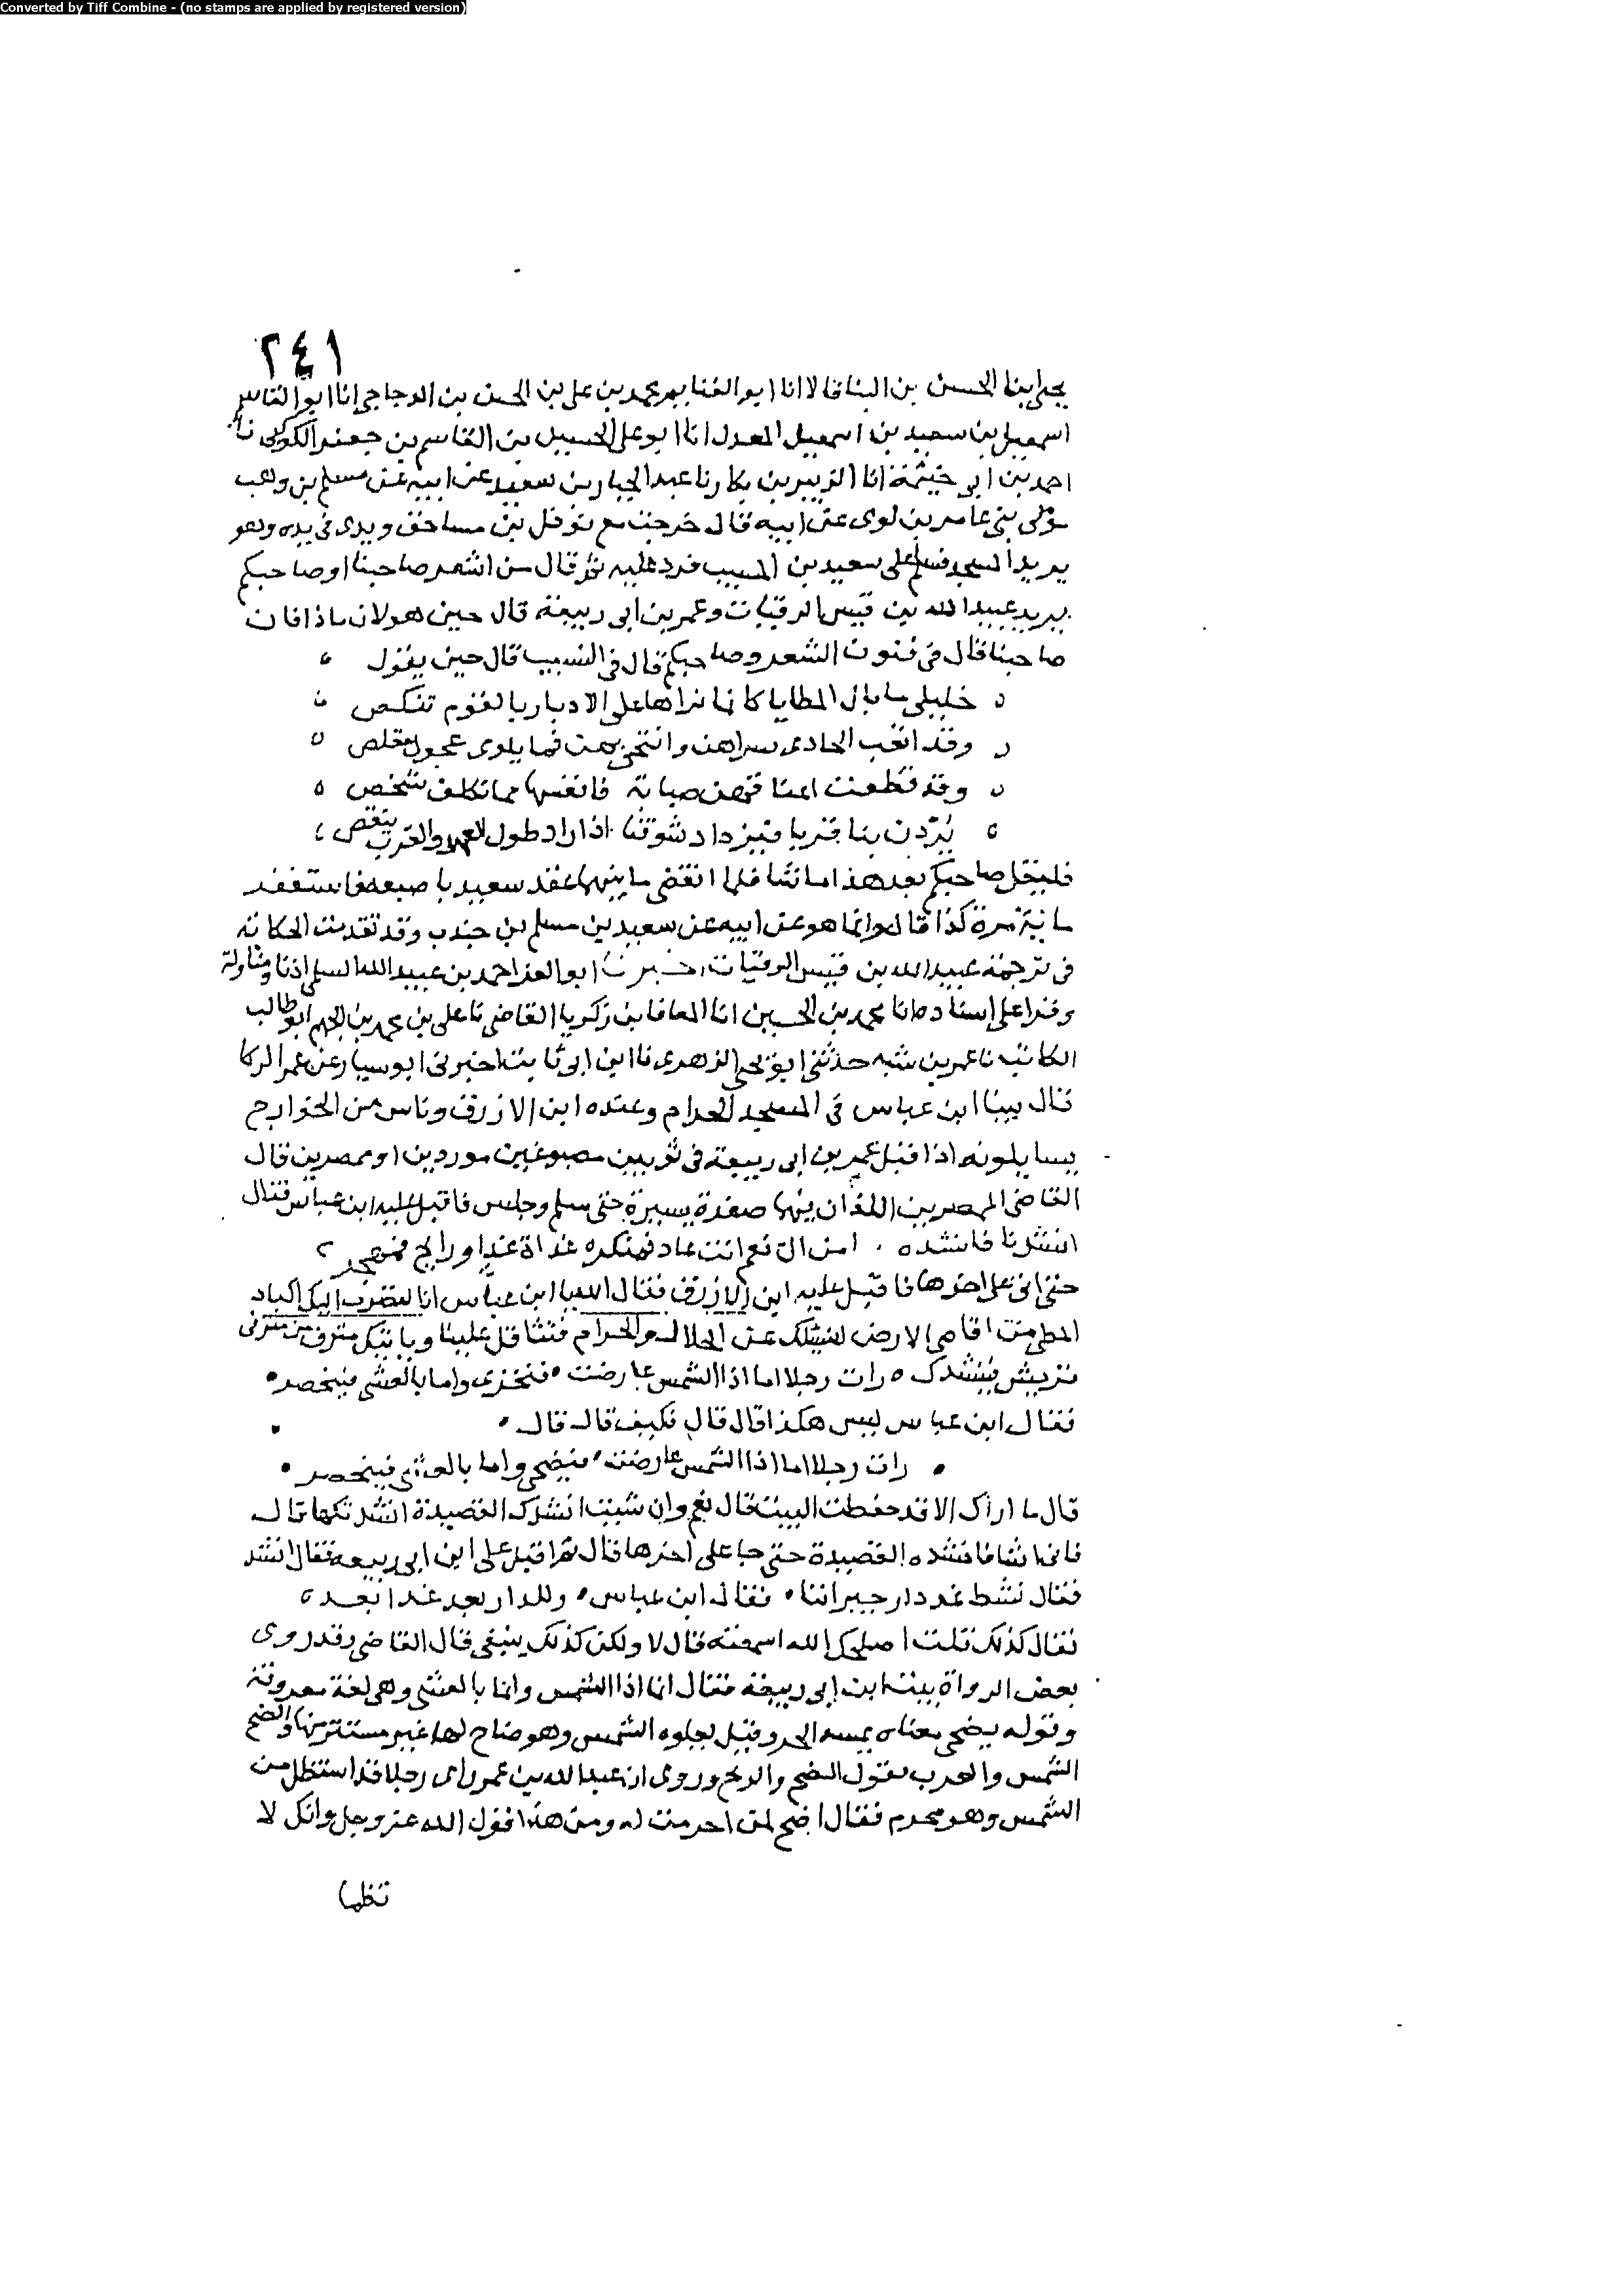 Converted by Tiff Combine - (no stamps are applied by registered version)
٢٤١
يحيى ابنا الحسن بن البنا قالا انا ابو الغنايم محمد بن على بن الحسن بن الدجاجى انا ابو القاسم
اسمعيل بن سعيد بن اسمعيل المعدل انا ابو على الحسين بن القاسم بن جعفر الكوكبى نا
احمد بن ابى خيثمة انا الزبير بن بكار نا عبد الجبار بن سعيد عن ابيه عن مسلم بن وهب
مولى بنى عامر بن لوى عن ابيه قال خرجت مع نوفل بن مساحق ويدى فى يده وهو
يريد المسجد فسلم على سعيد بن المسيب فرد عليه ثم قال من اشعر صاحبنا او صاحبكم
يريد عبيد الله بن قيس الرقيات وعمر بن ابى ربيعة قال حين هولان ماذا فان
صاحبنا قال فى فنون الشعر وصاحبكم قال فى النسيب قال حين يقول
خليلى ما بال المطايا كانما نراها على الادبار بالقوم تنكص
وقد اتعب الحادى سراهن وانتحى بهن فما يلوى عجول مقلص
وقد قطعت اعناقهن صبابة فانفسها مما تكلف شخص
يزدن بنا قربا فيزداد شوقنا اذا زاد طول العهد والقرب ينقص
فليقل صاحبكم بعد هذا ما شا فلما انقضى ما بينهما عقد سعيد باصبعه فاستغفر
ماية مرة كذا قال وانما هو عن ابيه عن سعيد بن مسلم بن جندب وقد تقدمت الحكاية
فى ترجمة عبيد الله بن قيس الرقيات اخبرنا ابو العز احمد بن عبيد الله السلمى اذنا ومناولة
وقرا على اسناده انا محمد بن الحسين انا المعافا بن زكريا القاضى نا على بن محمد بن الجهم ابو طالب
الكاتب نا عمر بن شبه حدثنى ابو يحيى الزهرى نا ابن ابى ثابت اخبرنى ابو سيار عن عمر الركا
قال بينا ابن عباس فى المسجد الحرام وعنده ابن الازرق وناس من الخوارج
يسايلونه اذ اقبل عمر بن ابى ربيعة فى ثوبين مصبوغين موردين او ممصرين قال
القاضى الممصرين اللذان فيهما صفرة يسيرة حتى سلم وجلس فاقبل عليه ابن عباس فقال
انشدنا فانشده . امن ال نعم انت غاد فمبكره غداة غد او رايح فمهجر
حتى اتى على اخرها فاقبل عليه ابن الازرق فقال الله يا ابن عباس انا لنضرب اليك اكباد
المطى من اقاصى الارض لنسلك عن الحلال والحرام فتثاقل علينا وياتيك مترف من مترفى
قريش فينشدك رات رجلا اما اذا الشمس عارضت فيخزى واما بالعشى فيخصر
فقال ابن عباس ليس هكذا قال قال فكيف قال قال
رات رجلا اما اذا الشمس عارضت فيضحى واما بالعشى فيخصر
قال ما اراك الا قد حفظت البيت قال نعم وان شيت انشدك القصيدة انشدتكها قال
فانى اشا فانشده القصيدة حتى جا على اخرها قال ثم اقبل على ابن ابى ربيعه فقال انشد
فقال تشط غدا دار جيراننا فقال ابن عباس وللدار بعد غد ابعد
فقال كذلك قلت اصلحك الله اسمعته قال لا ولكن كذلك ينبغى قال القاضى وقد روى
بعض الرواة بيت ابن ابى ربيعة فقال ايما اذا الشمس وايما بالعشى وهى لغة معروفة
وقوله يضحى معناه يمسه الحر وقيل تعلوه الشمس وهو ضاح لها غير مستتر منها والضح
الشمس والعرب تقول الضح والريح وروى ان عبد الله بن عمر راى رجلا قد استظل من
الشمس وهو محرم فقال اضح لمن احرمت له ومن هذا قول الله عز وجل وانك لا
تظما